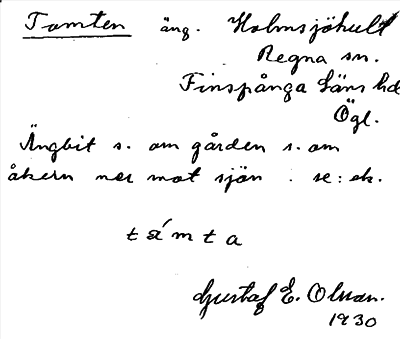 Tomten äng. Holmsjöhult
Regna sn.
Finspånga läns hd
Ögl.
Ängbit s. om gården s. om
åkern ner mot sjön. se: ek.
támta
Gustaf E. Olsson.
1930